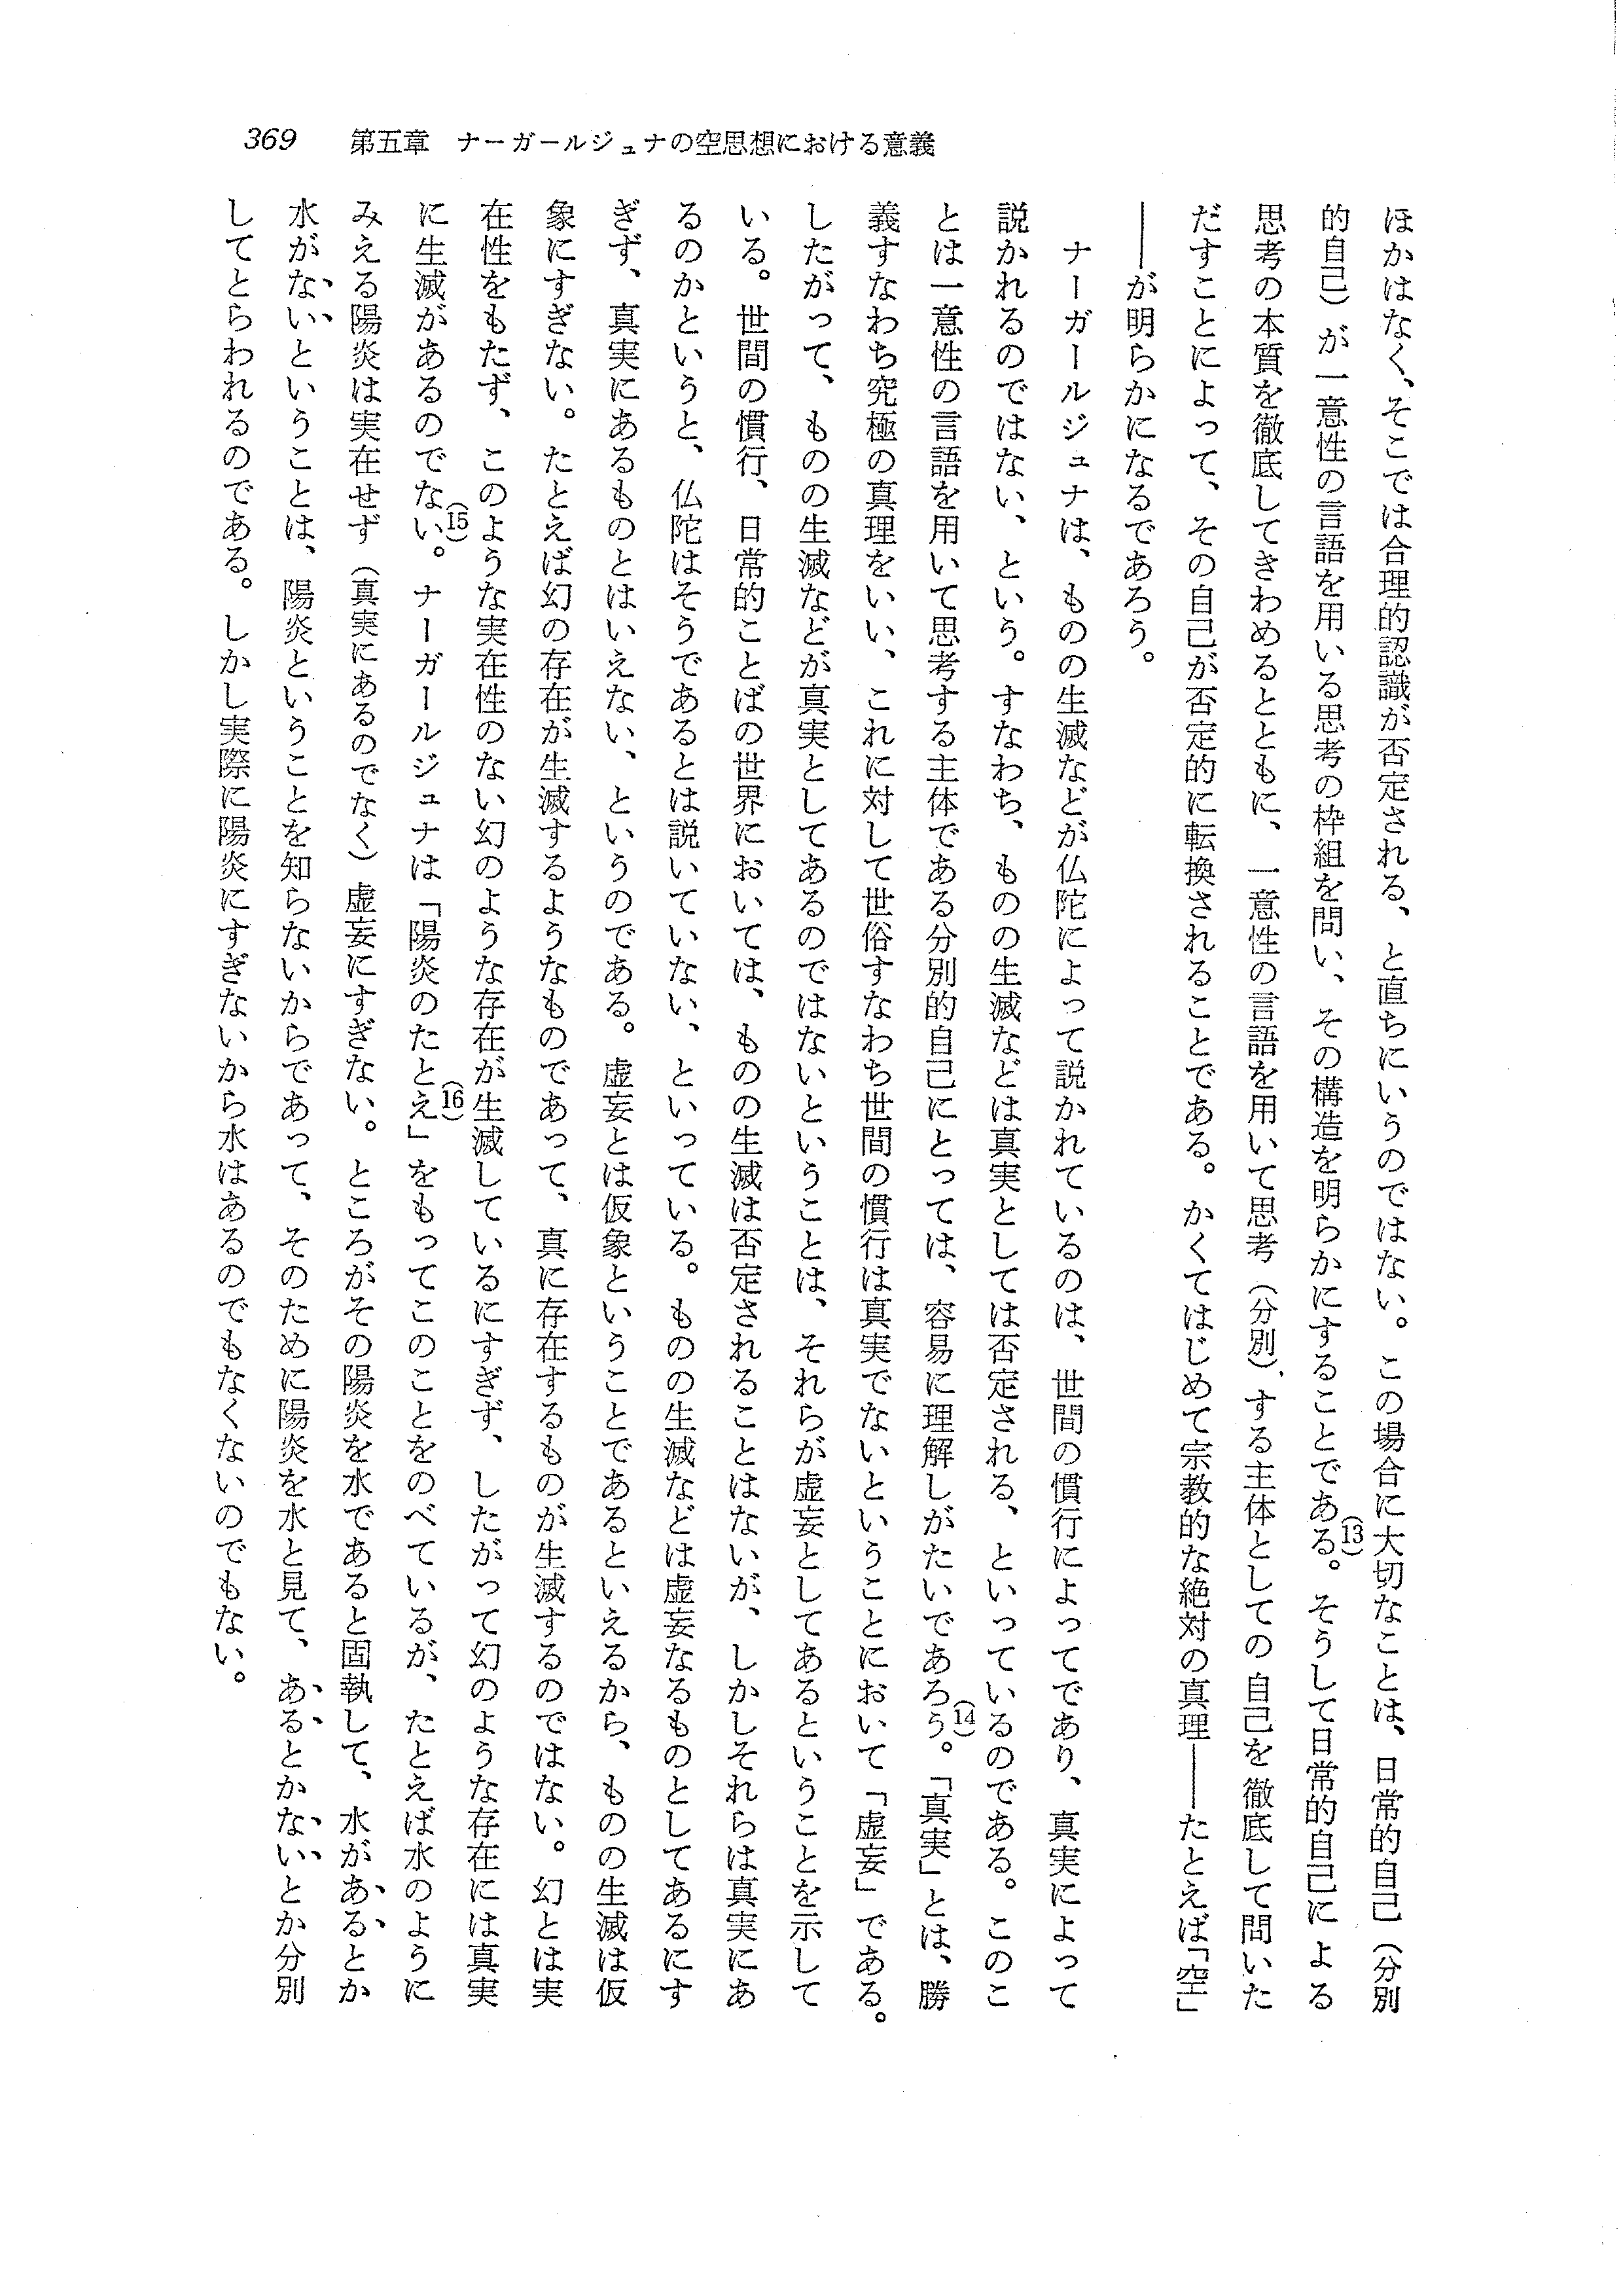 369　第五章　ナーガールジュナの空思想における意義
ほかはなく、そこでは合理的認識が否定される、と直ちにいうのではない。この場合に大切なことは、日常的自己（分別
的自己）が一意性の言語を用いる思考の枠組を問い、その構造を明らかにすることである。(13)そうして日常的自己による
思考の本質を徹底してきわめるとともに、一意性の言語を用いて思考（分別）する主体としての自己を徹底して問いた
だすことによって、その自己が否定的に転換されることである。かくてはじめて宗教的な絶対の真理――たとえば「空」
――が明らかになるであろう。
　ナーガールジュナは、ものの生滅などが仏陀によって説かれているのは、世間の慣行によってであり、真実によって
説かれるのではない、という。すなわち、ものの生滅などは真実としては否定される、といっているのである。このこ
とは一意性の言語を用いて思考する主体である分別的自己にとっては、容易に理解しがたいであろう。(14)「真実」とは、勝
義すなわち究極の真理をいい、これに対して世俗すなわち世間の慣行は真実でないということにおいて「虚妄」である。
したがって、ものの生滅などが真実としてあるのではないということは、それらが虚妄としてあるということを示して
いる。世間の慣行、日常的ことばの世界においては、ものの生滅は否定されることはないが、しかしそれらは真実にあ
るのかというと、仏陀はそうであるとは説いていない、といっている。ものの生滅などは虚妄なるものとしてあるにす
ぎず、真実にあるものとはいえない、というのである。虚妄とは仮象ということであるといえるから、ものの生滅は仮
象にすぎない。たとえば幻の存在が生滅するようなものであって、真に存在するものが生滅するのではない。幻とは実
在性をもたず、このような実在性のない幻のような存在が生滅しているにすぎず、したがって幻のような存在には真実
に生滅があるのでない。(15)ナーガールジュナは「陽炎のたとえ」(16)をもってこのことをのべているが、たとえば水のように
みえる陽炎は実在せず（真実にあるのでなく）虚妄にすぎない。ところがその陽炎を水であると固執して、水があるとか
水がないということは、陽炎ということを知らないからであって、そのために陽炎を水と見て、あるとかないとか分別
してとらわれるのである。しかし実際に陽炎にすぎないから水はあるのでもなくないのでもない。